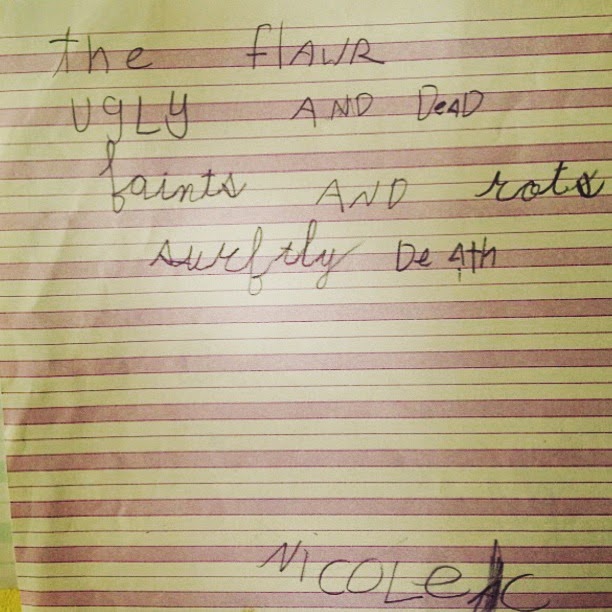 the flAWR
UgLy AND DeAD
faints AND rots
surftly DeAth
NICOLe C